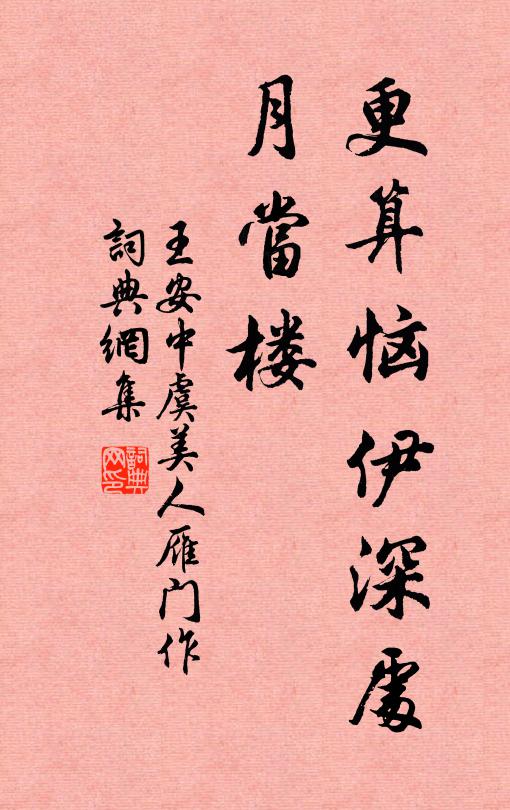 更算恼伊深處
月當楼
王安中虞美人雁门作
詞典網集
詞典网印